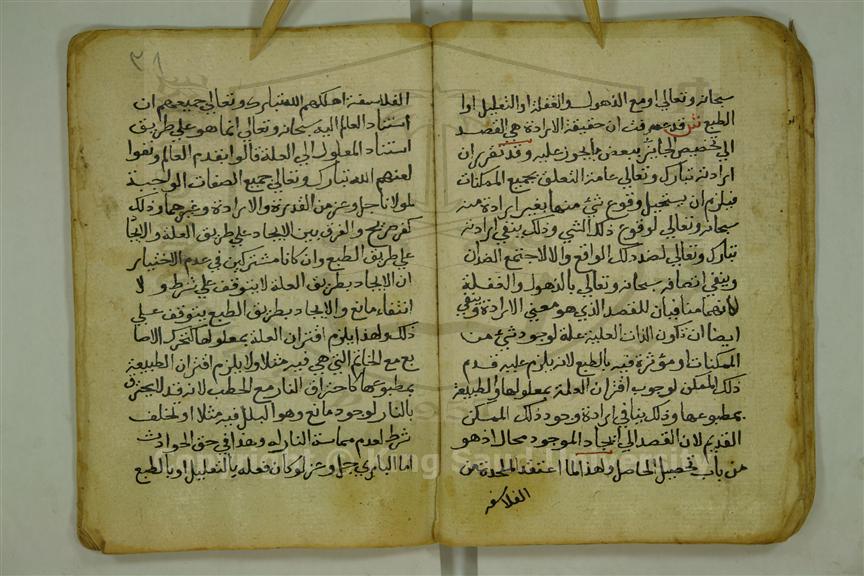 سبحانه وتعالى او مع الذهول او الغفلة او التعليل او با
الطبع ش قد عرفت ان حقيقة الارادة هي القصد
الى تخصيص الجائز ببعض ما يجوز عليه وقد تقرر ان
ارادته تبارك وتعالى عامة التعلق بجميع الممكنات
فيلزم ان يستحيل وقوع شئ منها بغير ارادة منه
سبحانه وتعالى لوقوع ذلك الشي وذلك ينفي ارادته
تبارك وتعالى لضد ذلك الواقع والا لاجتمع الضدان
وينفي اتصافه سبحانه وتعالى بالذهول والغفلة
لانهما منافيان للقصد الذي هو معنى الارادة وينفي
ايضا ان تكون الذات العلية علة لوجود شئ من
الممكنات او مؤثرة فيه بالطبع لانه يلزم عليه قدم
ذلك الممكن لوجوب اقتران العلة بمعلولها والطبيعة
بمطبوعها وذلك ينافي ارادة وجود ذلك الممكن
القديم لان القصد الى ايجاد الموجود محال اذ هو
من باب تحصيل الحاصل ولهذا لما اعتقد الملحدة من
الفلاسفه
٣١
الفلاسفة اهلكهم الله تبارك وتعالى جميعهم ان
استناد العالم اليه سبحانه وتعالى انما هو على طريق
استناد المعلول الى العلة قالوا بقدم العالم ونفوا
لعنهم الله تبارك وتعالى جميع الصفات الواجبة
لمولانا جل وعز من القدرة والارادة وغيرهما وذلك
كفر صريح والفرق بين الايجاد على طريق العلة والايجاد
على طريق الطبع وان كانا مشتركين في عدم الاختيار
ان الايجاد بطريق العلة لا يتوقف على شرط ولا
انتفاء مانع والايجاد بطريق الطبع يتوقف على
ذلك ولهذا يلزم اقتران العلة بمعلولها كتحرك الاصا
بع مع الخاتم التي هي فيه مثلا ولا يلزم اقتران الطبيعة
بمطبوعها كاحتراق النار مع الحطب لانه قد لا يحترق
بالنار لوجود مانع وهو البلل فيه مثلا او تخلف
شرط لعدم مماسة النار له وهذا في حق الحوادث
اما الباري جل وعز لو كان فعله بالتعليل او بالطبع
Copyright © King Saud University